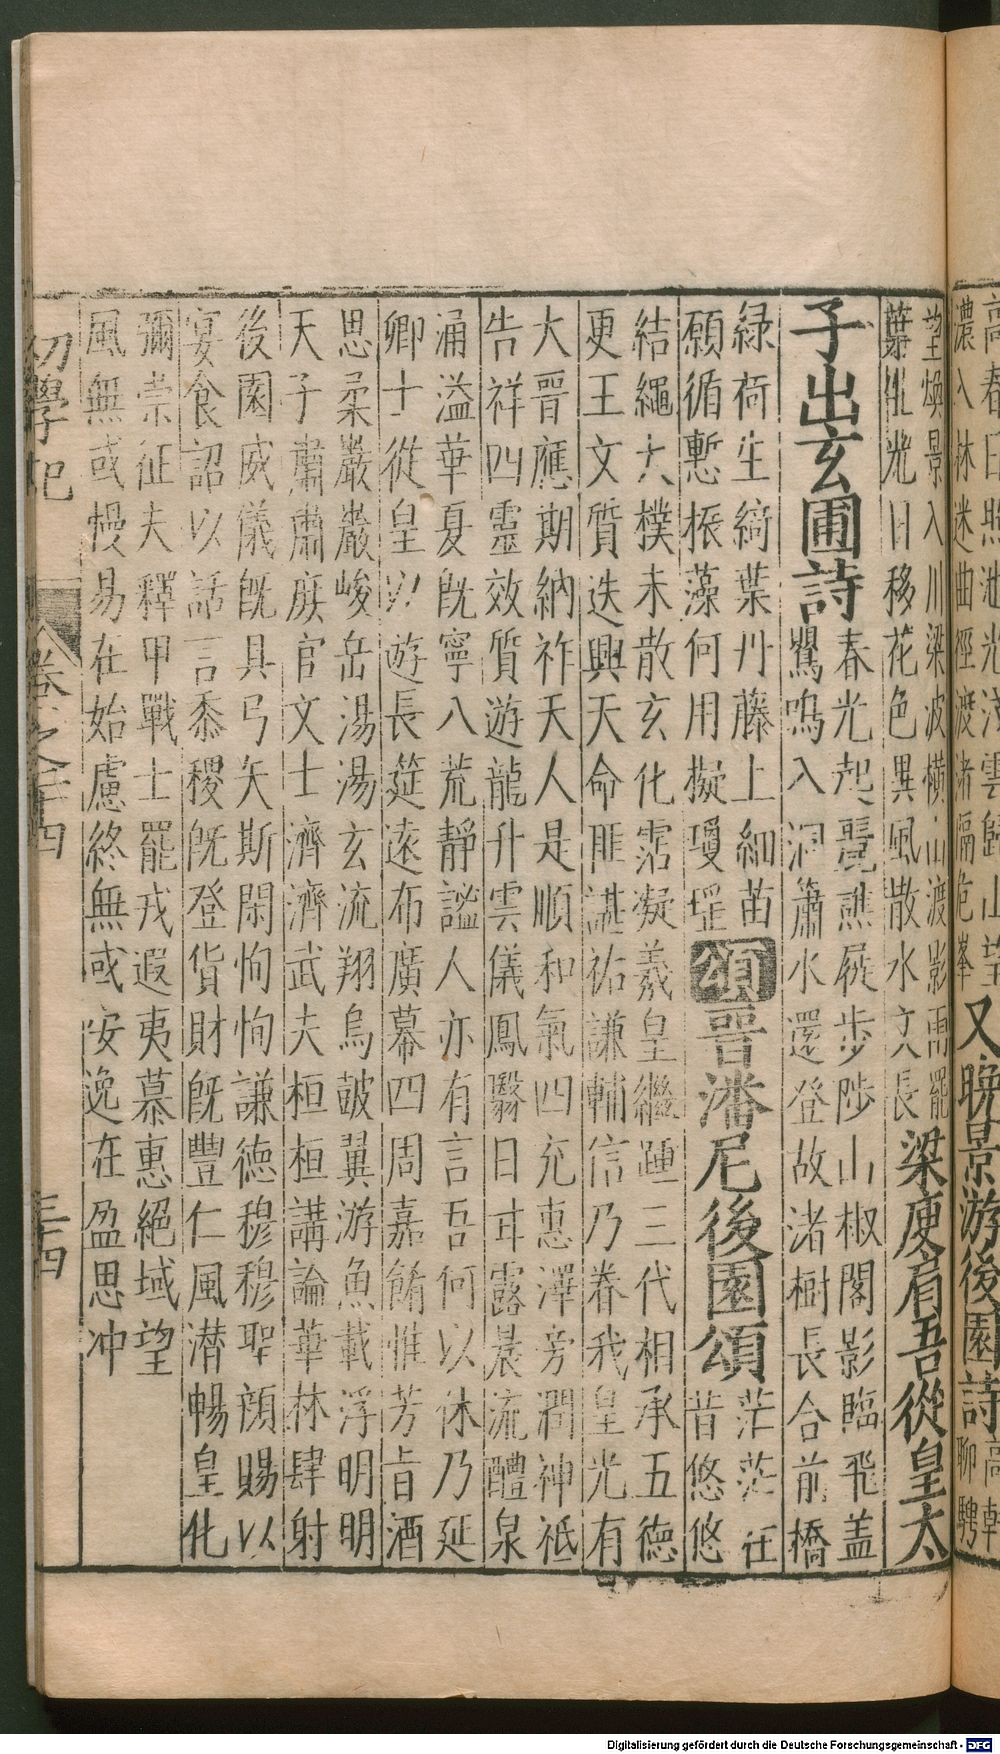 高春日照池光淺雲歸山望
濃入林迷曲徑渡渚隔危峯
又晚景游後園詩
高軒
聊騁
望煥景入川梁波橫山渡影雨罷
葉生光日移花色異風散水文長
梁庾肩吾從皇太
子出玄圃詩
春光起麗譙屣步陟山椒閣影臨飛盖
鸎鳴入洞簫水還登故渚樹長合前橋
緑荷生綺葉丹藤上細苗
願循慙振藻何用擬瓊瑶
頌
晉潘尼後園頌
茫茫在
昔悠悠
結繩大樸未散玄化霑凝羲皇繼踵三代相承五德
更王文質迭興天命匪諶祐謙輔信乃眷我皇光有
大晉應期納祚天人是順和氣四充惠澤旁潤神祗
告祥四靈效質遊龍升雲儀鳳翳日甘露晨流醴泉
涌溢華夏旣寧八荒靜謐人亦有言吾何以休乃延
卿士從皇以遊長筵遠布廣幕四周嘉餚惟芳旨酒
思柔巖巖峻岳湯湯玄流翔鳥鼓翼游魚載浮明明
天子肅肅庶官文士濟濟武夫桓桓講論華林肆射
後園威儀旣具弓矢斯閑恂恂謙德穆穆聖顔賜以
宴食詔以話言黍稷旣登貨財旣豐仁風潜暢皇化
彌崇征夫釋甲戰士罷戎遐夷慕惠絕域望
風無或慢易在始慮終無或安逸在盈思冲
初學記
卷之二十四
三十四
Digitalisierung gefördert durch die Deutsche Forschungsgemeinschaft - DFG